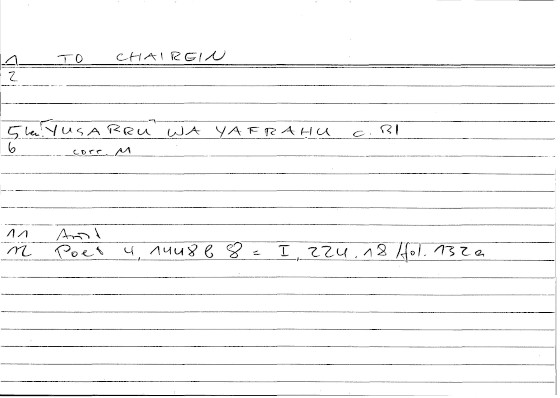 1 TO CHAIREIN
2
5 "YUSARRU" WA YAFRAHU c. BI
6 corr. M
11 Arist
12 Poet 4, 1448 b 8 = I, 224.18 / fol. 132a